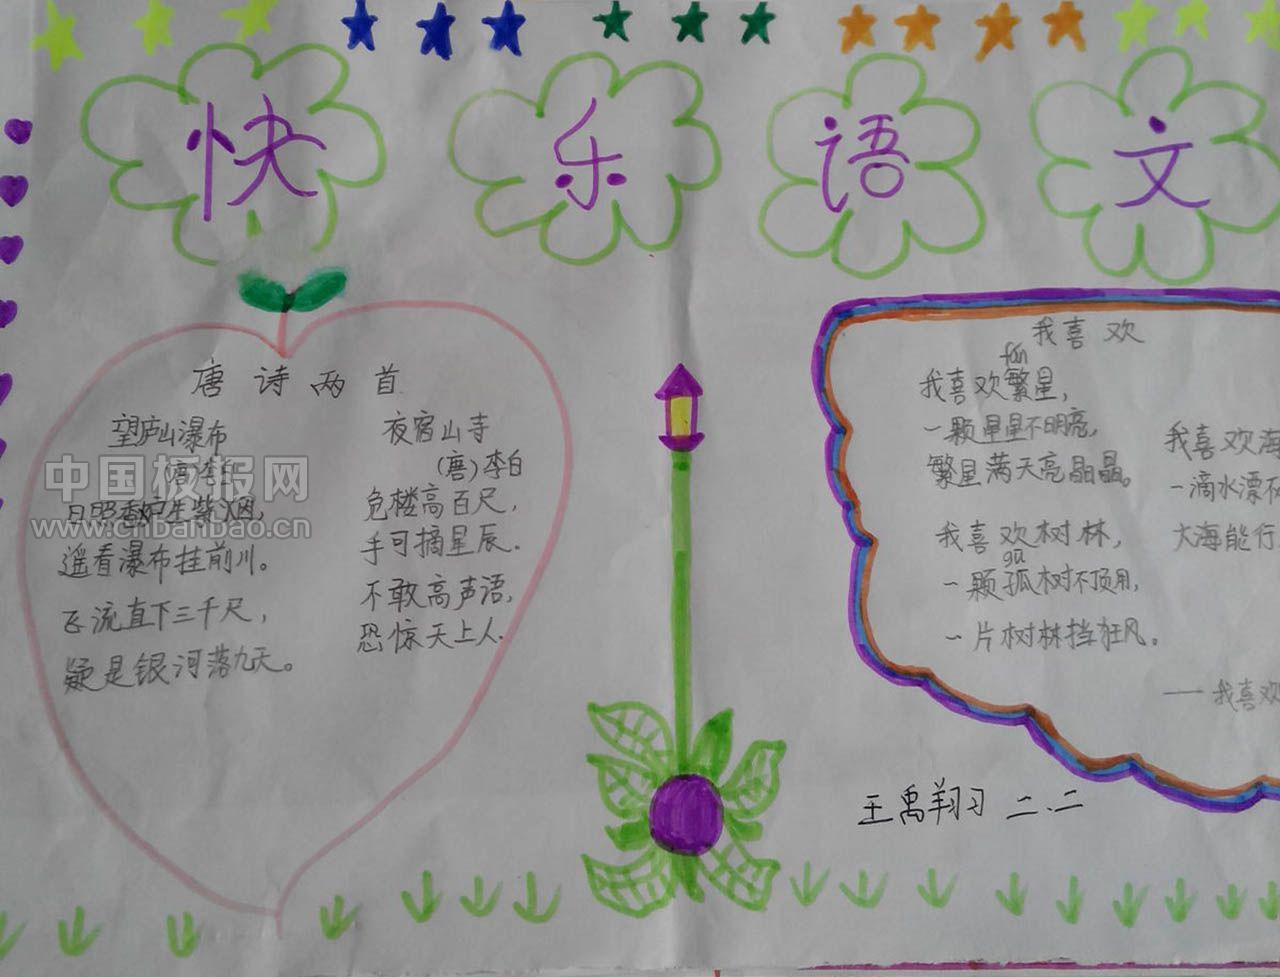 快乐语文
唐诗两首
望庐山瀑布
(唐)李白
日照香炉生紫烟，
遥看瀑布挂前川。
飞流直下三千尺，
疑是银河落九天。
夜宿山寺
(唐)李白
危楼高百尺，
手可摘星辰.
不敢高声语，
恐惊天上人.
中国板报网
www.cnbanbao.cn
我喜欢
fán
我喜欢繁星，
一颗星星不明亮，
繁星满天亮晶晶。
我喜欢树林，
gū
一颗孤树不顶用，
一片树林挡狂风。
我喜欢海
一滴水漂不
大海能行
——我喜欢
王禹翔习 二.二